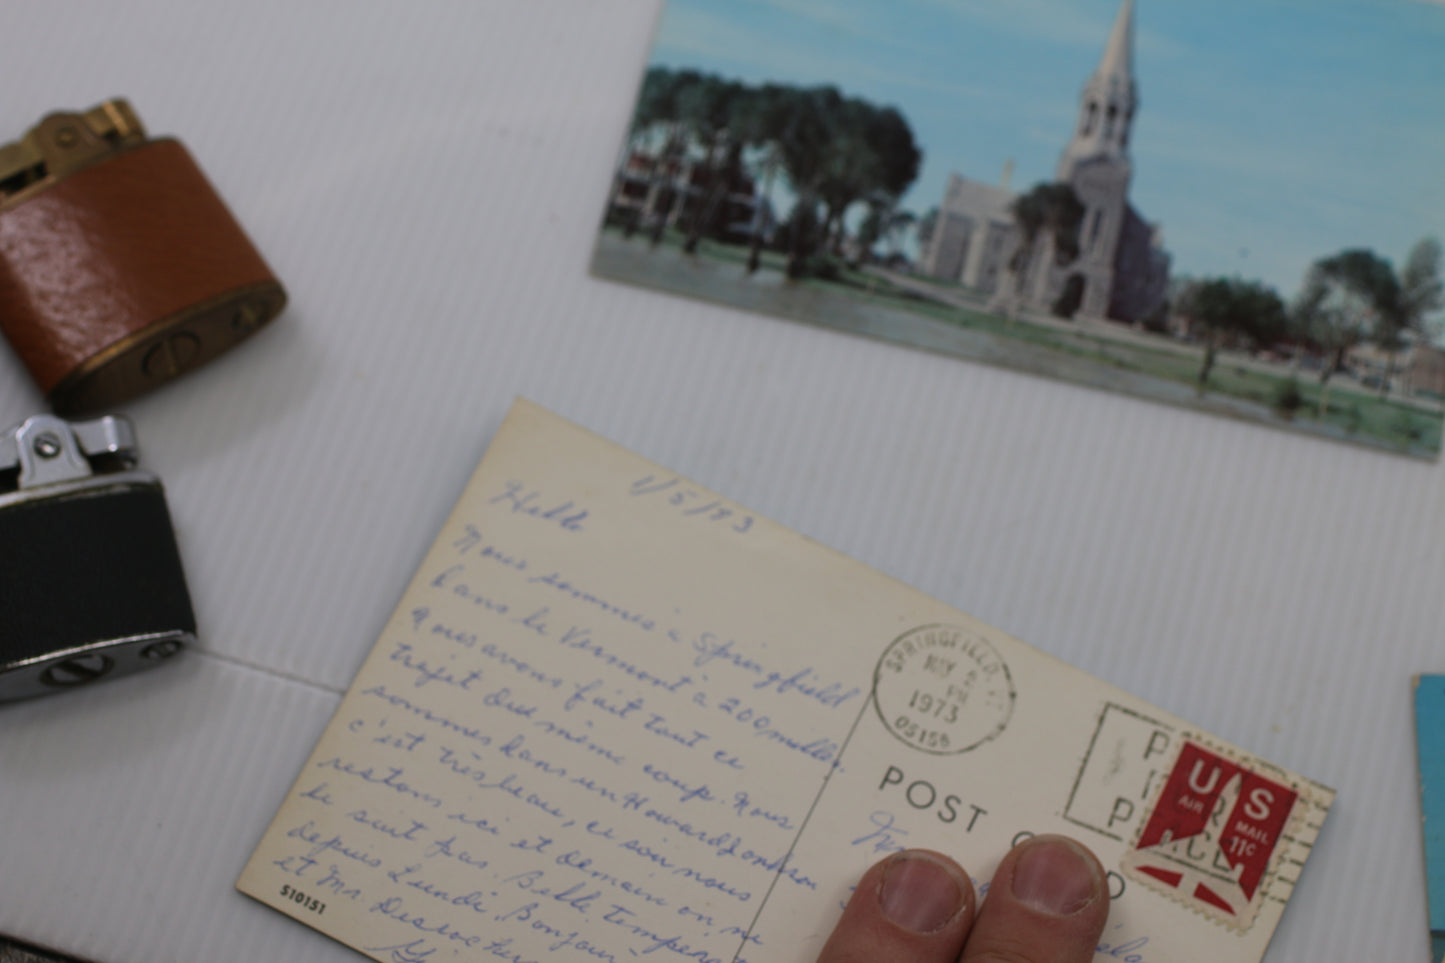 1/5/73
Hello
Nous sommes à Springfield
dans le Vermont à 200 milles.
Nous avons fait tout ce
trajet du même coup. Nous
sommes dans un Howard Jonhson
c'est très beau, ce soir nous
restons ici et demain on ne
le suit pas. Belle température
depuis Lundi, Bonjour
et Mr. Desrochers
S10151
SPRINGFIELD, VT
MAY 2
PM
1973
05156
POST
US
AIR MAIL
11c